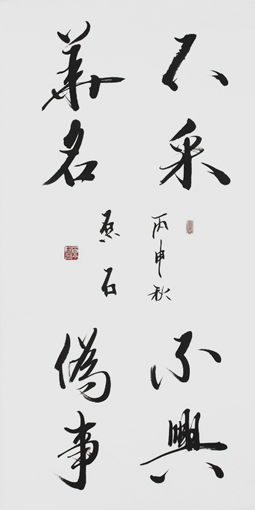 不采
華名
不興
偽事
丙申秋
石